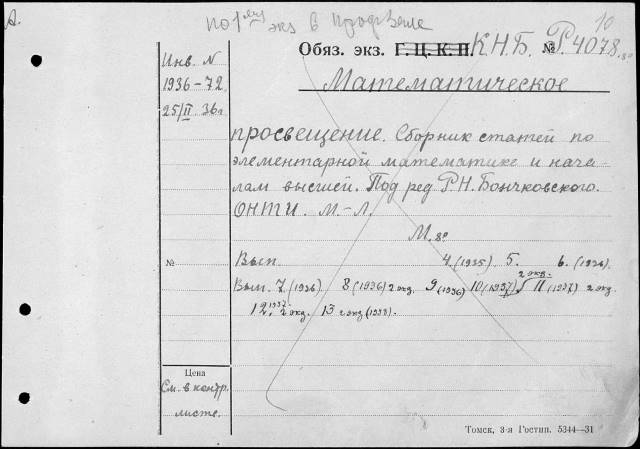 А.
по 1 экз в Профзале
10
Обяз. экз. Г. Ц. К. П. К.Н.Б. № Р.4078.8°
Инв. N
1936-72.
25/II 36г
Математическое
просвещение. Сборник статей по
элементарной математике и нача-
лам высшей. Под ред Р.Н. Бончковского.
ОНТИ. М.-Л.
М. 8°
№
Вып 4.(1935) 5. 6.(1936).
2 экз.
Вып. 7.(1936) 8(1936) 2 экз. 9(1936) 10(1937) 11(1937) 2 экз.
12.1937. 2 экз. 13 2 экз (1938).
Цена
См. в контр.
листе.
Томск, 3-я Гостип. 5344—31